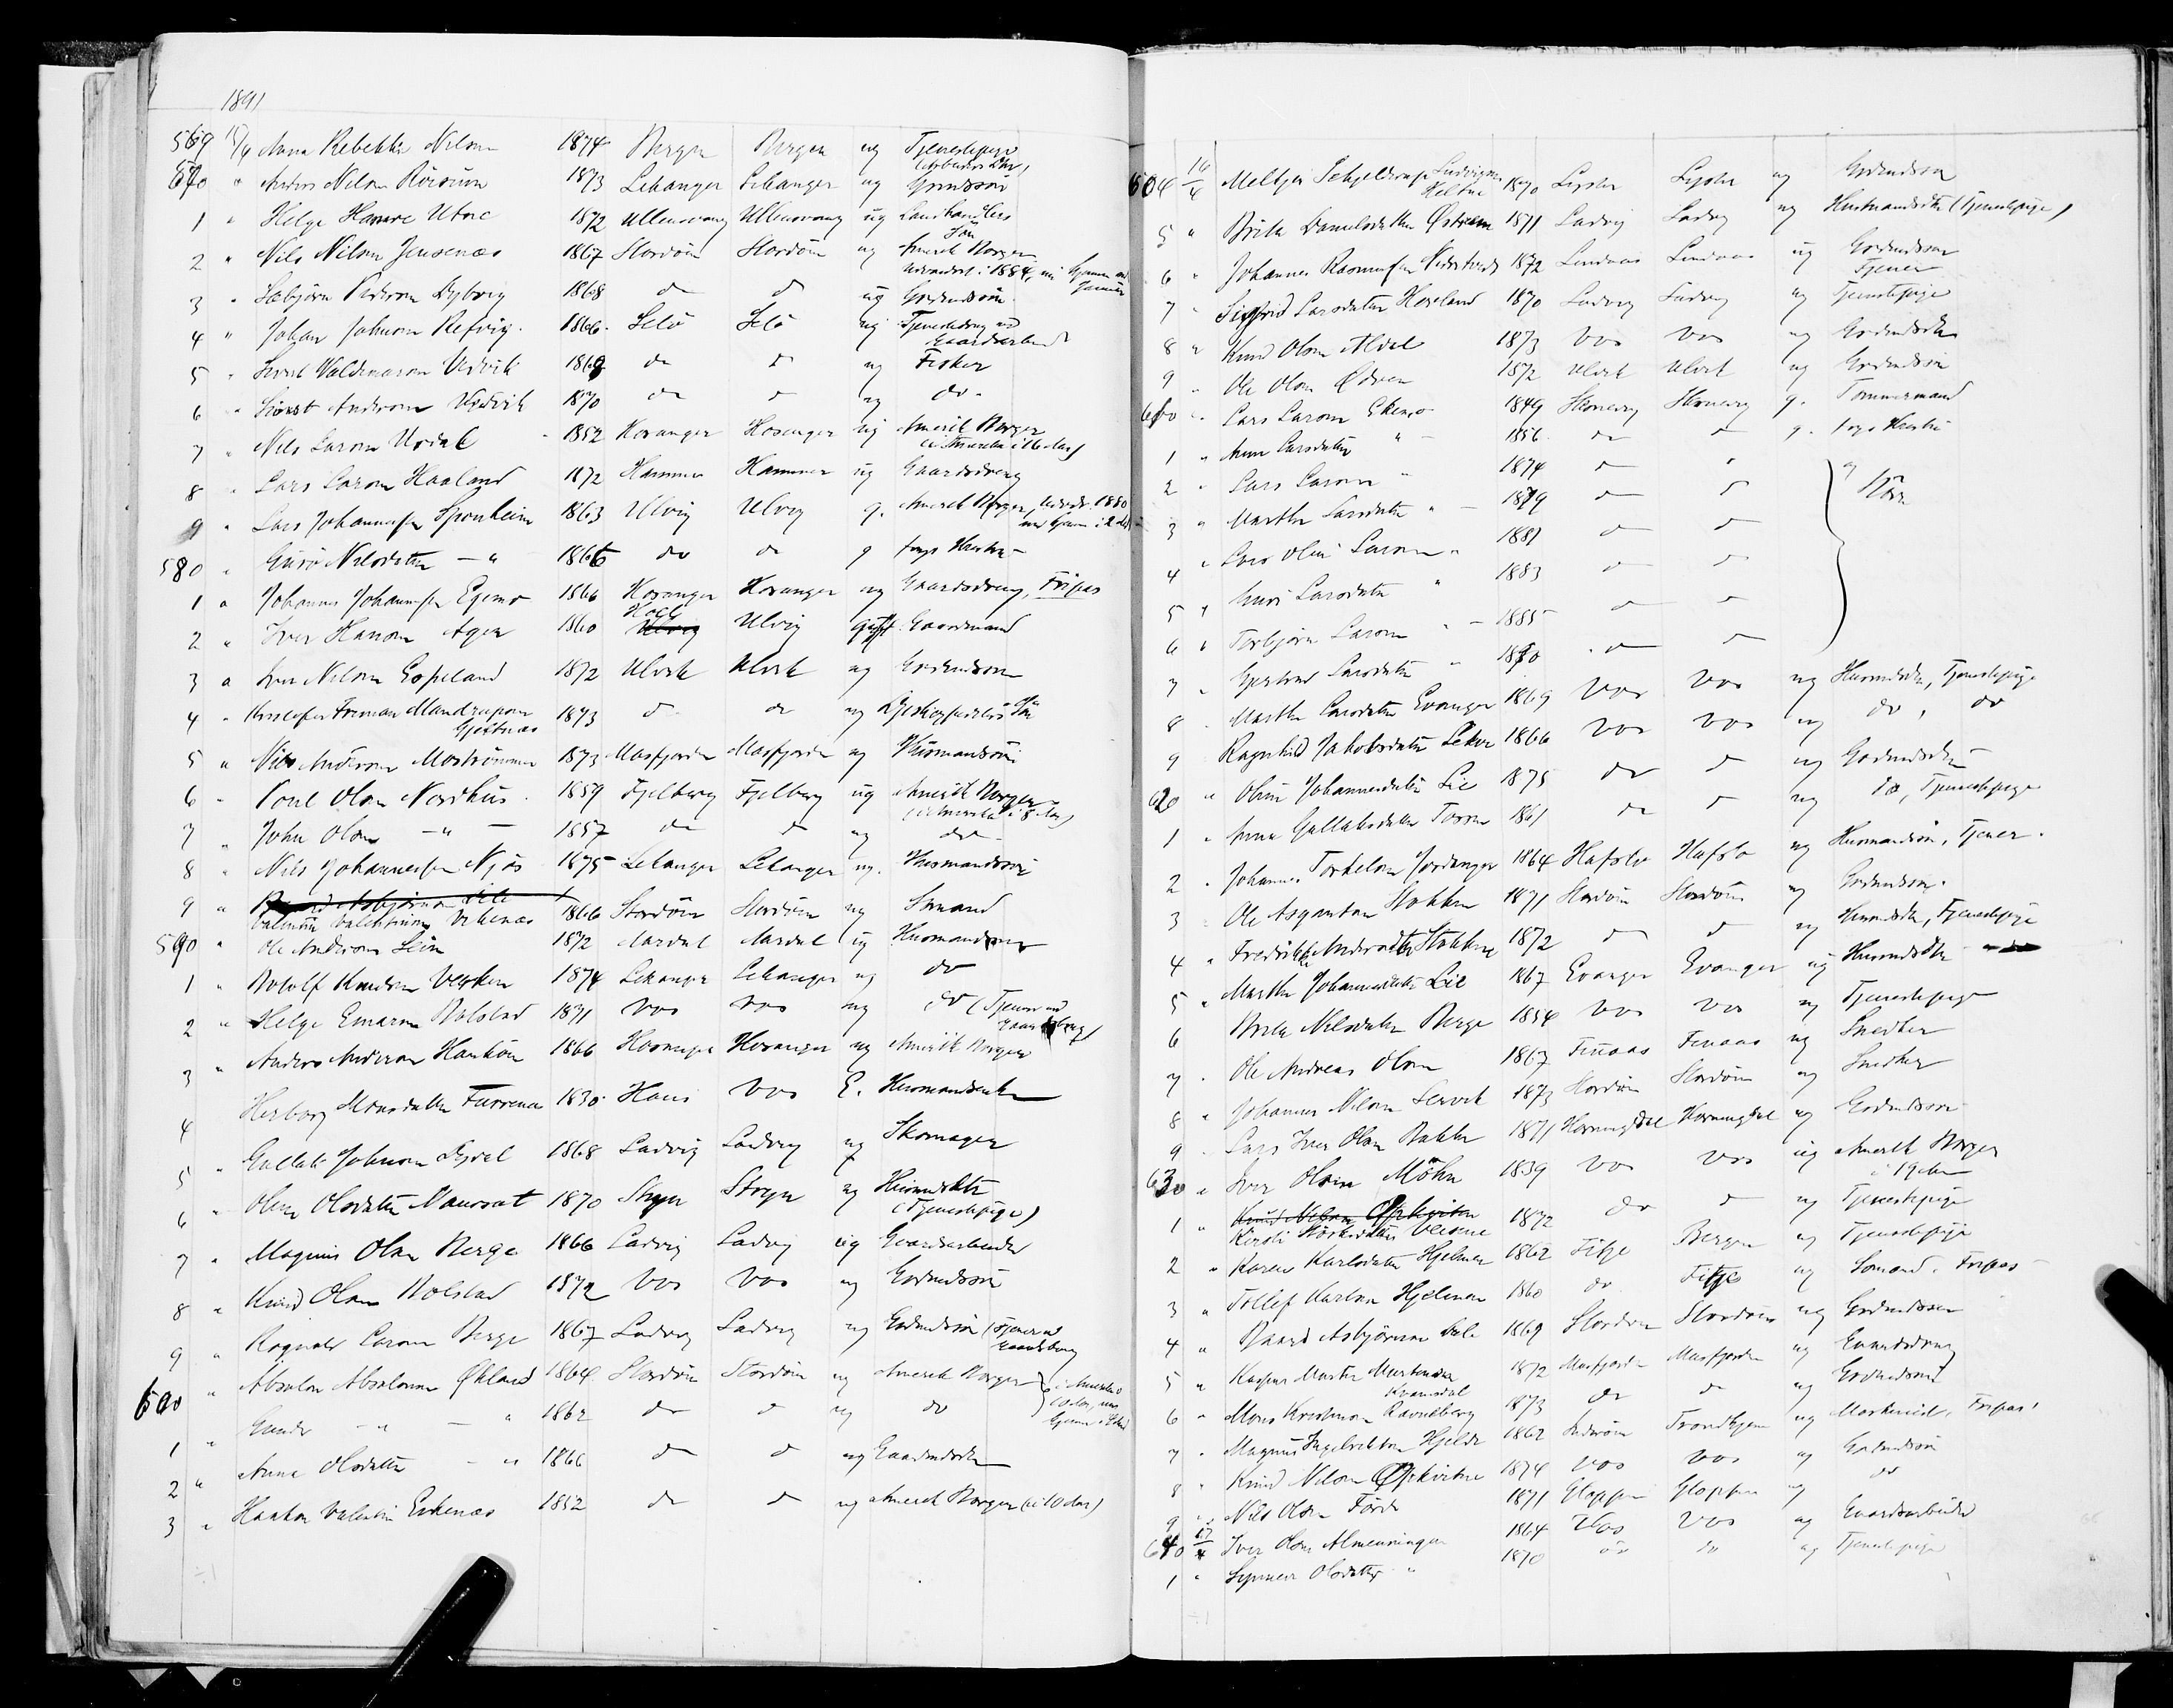 1891
569 15/4 Anna Rebekka Nilsen 1874 Bergen Bergen ug Tjenestepige
(Arbeiders Dtr)
570 " Anders Nilsen Röisum 1873 Lekanger Lekanger ug Grmdssön
1 " Helge Hanore Utne 1872 Ullensvang Ullensvang ug Landhandlers
Sön
2 " Nils Nilsen Jensenæs 1867 Stordöen Stordöen ug Amerik Borger
udvandret i 1884, nu hjemme
3 " Sæbjörn Pederson Dyborg 1868 do do ug Grdmdssön
4 " Johan Johnson Refvig 1866 Selö Selö ug Tjenestedreng ved
Gaardsarbeid
5 " Sivert Valdemarsen Vedvik 1869 do do ug Fisker
6 " Sivert Andersen Vedvik 1870 do do ug do
7 " Nils Larsen Urdal 1852 Hosanger Hosanger ug Amerik Borger
(i Amerika i 16 Aar)
8 " Lars Larsen Haaland 1872 Hammer Hammer ug Gaardsdreng
9 " Lars Johannessen Sponheim 1863 Ulvig Ulvig g. Amerik Borger, Udvdr. 1880
580 " Guro Nilsdatter — " 1866 do do g fngs Hustru
1 " Johannes Johannessen Egemo 1866 Hosanger Hosanger ug Gaardsdreng, Fripas
2 " Iver Hanson Aga 1860 Ulvig Ulvig Gaardmand
3 " Iver Nilsen Espeland 1872 Ulvik Ulvik ug Grdmdssön
4 " Kristofer Froman Mandrupsen
Gjeitnæs 1873 do do ug Sön
5 " Nils Anderson Mostrømmen 1873 Masfjorden Masfjorden ug Husmandssön
6 " Poul Olsen Nordhus 1859 Fjelberg Fjelberg ug Amerik Borger
(i Amerika i 8 Aar)
7 " John Olsen — " — 1857 do do ug do
8 " Nils Johannessen Njös 1875 Lekanger Lekanger ug. Husmandssön
9 " Baard Asbjörnsen Dale
Valentin Valentinsen Eskenæs 1866 Stordöen Stordöen ug Sömand
590 " Ole Anderson Lien 1872 Aardal Aardal ug Husmandssön
1 " Botolf Knudsen Vesken 1874 Lekanger Lekanger ug do
2 " Helge Einarsen Bolstad 1871 Vos Vos ug do (Tjener ved
Gaardsbrug)
3 " Anders Anderson Haukön 1866 Hosanger Hosanger ug Amerik Borger
4 Herborg Monsdatter Furrenes 1830 Haus Vos E. Husmandsenke
5 " Gullak Johnson 1868 Ladvig Ladvig ug Skomager
6 " Oline Olsdatter Maurset 1870 Stryn Stryn ug Husmdsdtr
(Tjenestepige)
7 " Magnus Olsen Berge 1866 Ladvig Ladvig ug Gaardsarbeider
8 " Knud Olsen Bolstad 1872 Vos Vos ug Grdmdssön
9 " Ragnald Larsen Berge 1867 Ladvig Ladvig ug Grdmdssön (Tjener ved
Gaardsbrug
600 " Absalon Absalonsen Økland 1864 Stordöen Stordöen ug Amerik Borger
1 " Gunder — " — " 1862 do do ug do
2 " Anna Olsdatter — " 1866 do do ug Gaardmdsdtr
3 " Haakon Valentin Eskenæs 1852 do do ug Amerik Borger (i 10 Aar)
604 16/4 Meltzer Schjelderup Ludvigsen
Heltne 1870 Lyster Lyster ug Grdmdssön
5 " Brita Danielsdatter Østrem 1871 Ladvig Ladvig ug Husmandsdtr (Tjenestepige)
6 " Johannes Rasmussen Nedretvedt 1872 Lindaas Lindaas ug Grdmdssön
Tjener
7 " Sigfrid Larsdatter Hovland 1870 Ladvig Ladvig ug Tjenestepige
8 " Knud Olsen Afdal 1873 Vos Vos ug Grdmdssön
9 " Ole Olson Ødven 1872 Ulvik Ulvik ug Grdmdssön
610 " Lars Larson Ekemo 1849 Skonevig Skonevig g. Tömmermand
1 " Anna Larsdatter " 1856 do do g. fngs Hustru
2 " Lars Larson " 1874 do do
Börn
3 " Martha Larsdatter " 1879 do do
4 " Lars Olai Larsen " 1881 do do
5 " Guri Larsdatter " 1883 do do
6 " Torbjörn Larsen " 1885 do do
7 " Gjertrud Larsdatter " do do
8 " Martha Larsdatter Evanger 1869 Vos Vos ug Husmdsdtr, Tjenestepige
9 Ragnhild Jakobsdatter Lekve 1866 Vos Vos ug do, do
620 " Oline Johannesdatter Lie 1875 do do ug Grdmdsdtr
1 " Anna Gullaksdatter 1861 do do ug do, Tjenestepige
2 " Johannes Torkelson Jordanger 1864 Hafslo Hafslo ug Husmandssön, Tjener.
3 " Ole Asgautson Stokken 1871 Stordöen Stordöen ug Grdmdssön
4 " Fredrikke Andersdtr Stokken 1872 do do ug Husmdsdtr, Tjenestepige
5 " Martha Johannesdatter Lie 1867 Evanger Evanger ug Husmdsdtr
6 Brita Nilsdatter Berge 1854 Vos Vos ug Tjenestepige
7 " Ole Andreas Olsen 1867 Finaas Finaas ug Snedker
8 " Johannes Nilsen Leirvik 1873 Stordöen Stordöen ug Snedker
9 " Lars Iver Olsen Bakke 1871 Horningdal Horningdal ug Grdmdssön
630 " Iver Olsen Möhn 1839 Vos Vos ug Amerik Borger
i 19 Aar
1 " Knud Nilsen Opkvitne
Kirsti 1872 do do ug Tjenestepige
2 " Karen Karlsdatter Hjelmen 1862 Fitje Bergen ug Tjenestepige
3 " Tollef Karlson Hjelmen 1860 do Fitje ug Sömand. Fripas
4 " Baard Asbjörnsen Dale 1869 Stordöen Stordöen ug Grdmdssön
5 " Kasper Martin Mortensen
Kvamsdal 1872 Masfjorden Masfjorden ug Gaardsdreng
6 " Mons Kristenson Ravneberg 1873 do do ug Grdmdssön
7 " Magnus Ingebrektson Hjelde 1862 Inderöen Trondhjem ug Maskinist. Fripas
8 " Knud Nilson Opkvitne 1874 Vos Vos ug Grdmdssön
9 " Nils Olsen Förde 1871 Gloppen Gloppen ug do
640 17/4 Iver Olsen Almenningen 1864 Vos Vos ug Gaardsarbeider
1 " Synneva Olsdatter " 1870 do do ug Tjenestepige